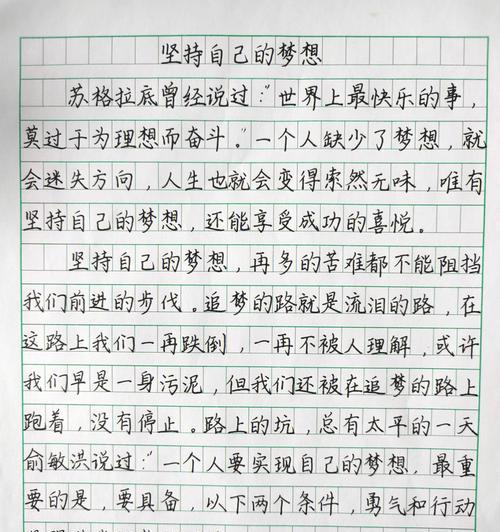 坚持自己的梦想
苏格拉底曾经说过:"世界上最快乐的事,
莫过于为理想而奋斗."一个人缺少了梦想,就
会迷失方向,人生也就会变得索然无味,唯有
坚持自己的梦想,还能享受成功的喜悦。
坚持自己的梦想,再多的苦难都不能阻挡
我们前进的步伐。追梦的路就是流泪的路,在
这路上我们一再跌倒,一再不被人理解,或许
我们早是一身污泥,但我们还被在追梦的路上
跑着,没有停止.路上的坑,总有太平的一天
俞敏洪说过:"一个人要实现自己的梦想,最重
要的是,要具备,以下两个条件,勇气和行动